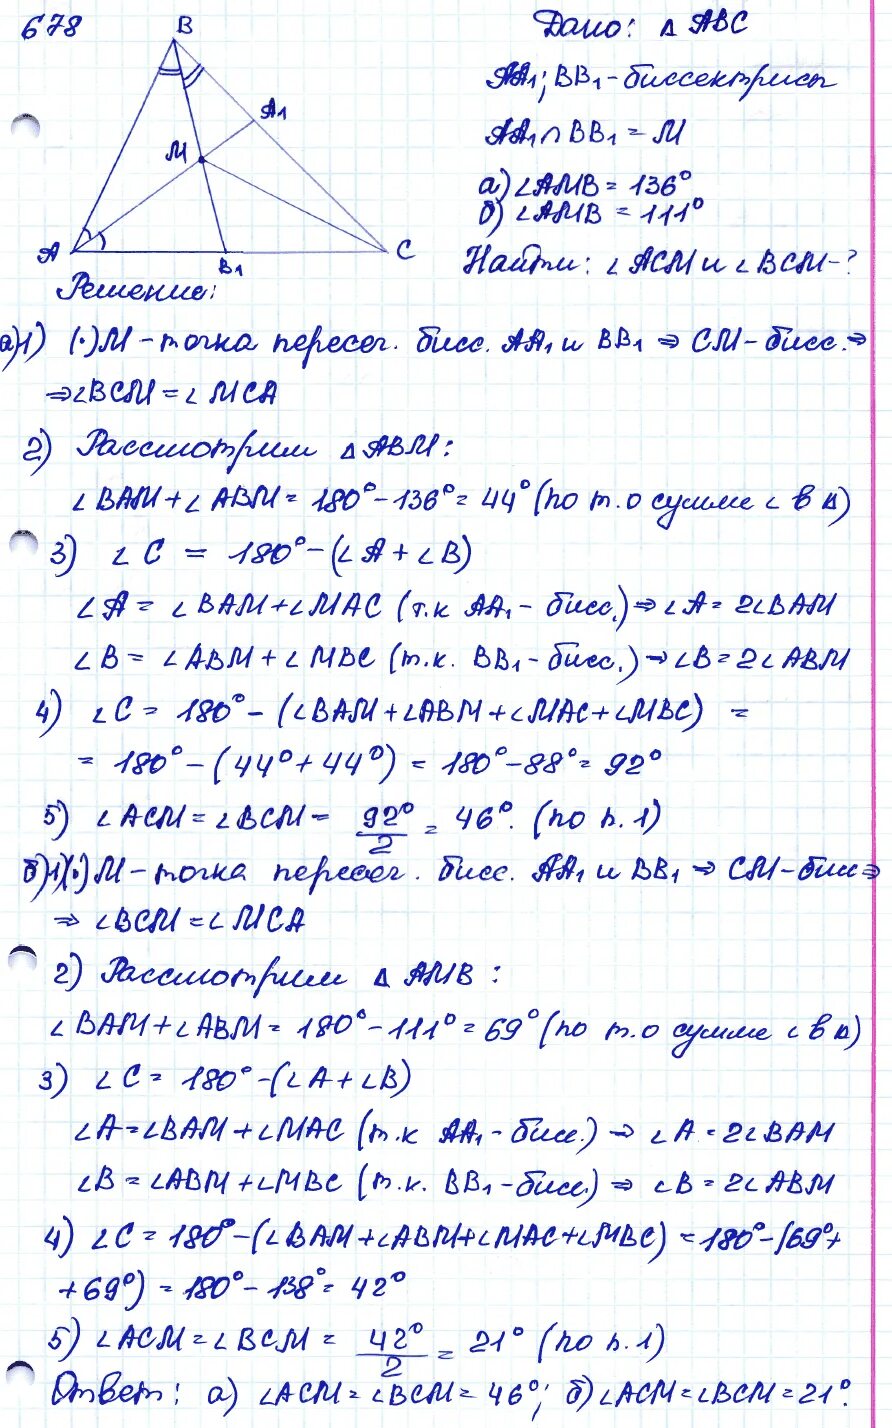 678
B
A1
M
A
B1
C
Дано: △ ABC
AA1; BB1 - биссектрисы
AA1 ∩ BB1 = M
а) ∠AMB = 136°
б) ∠AMB = 111°
Найти: ∠ACM и ∠BCM - ?
Решение:
а)1) (·)M - точка пересеч. бисс. AA1 и BB1 ⇒ CM - бисс. ⇒
⇒ ∠BCM = ∠MCA
2) Рассмотрим △ABM:
∠BAM + ∠ABM = 180° - 136° = 44° (по т. о сумме ∠ в △)
3) ∠C = 180° - (∠A + ∠B)
∠A = ∠BAM + ∠MAC (т.к AA1 - бисс.) ⇒ ∠A = 2∠BAM
∠B = ∠ABM + ∠MBC (т.к. BB1 - бисс.) ⇒ ∠B = 2∠ABM
4) ∠C = 180° - (∠BAM + ∠ABM + ∠MAC + ∠MBC) =
= 180° - (44° + 44°) = 180° - 88° = 92°
5) ∠ACM = ∠BCM = 92°/2 = 46°. (по п. 1)
б)1)(·)M - точка пересеч. бисс. AA1 и BB1 ⇒ CM - бисс ⇒
⇒ ∠BCM = ∠MCA
2) Рассмотрим △ AMB:
∠BAM + ∠ABM = 180° - 111° = 69° (по т. о сумме ∠ в △)
3) ∠C = 180° - (∠A + ∠B)
∠A = ∠BAM + ∠MAC (т.к AA1 - бисс.) ⇒ ∠A = 2∠BAM
∠B = ∠ABM + ∠MBC (т.к. BB1 - бисс.) ⇒ ∠B = 2∠ABM
4) ∠C = 180° - (∠BAM + ∠ABM + ∠MAC + ∠MBC) = 180° - (69° +
+ 69°) = 180° - 138° = 42°
5) ∠ACM = ∠BCM = 42°/2 = 21° (по п. 1)
Ответ: а) ∠ACM = ∠BCM = 46°; б) ∠ACM = ∠BCM = 21°.